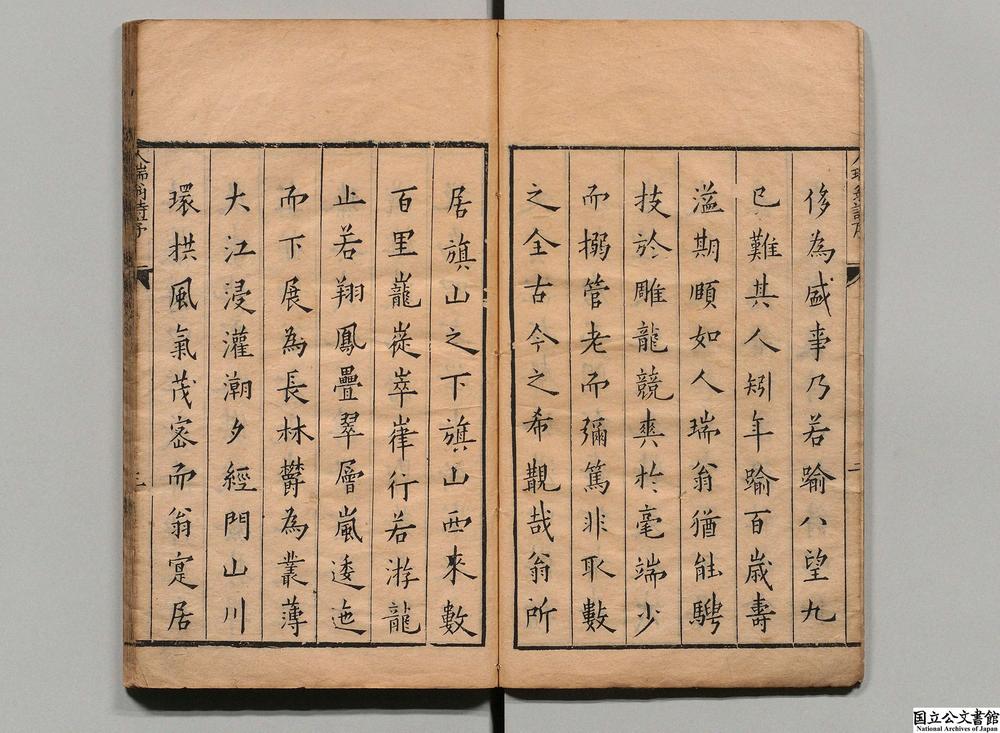 侈為盛事乃若踰八望九
已難其人矧年踰百歲壽
溢期頤如人瑞翁猶能騁
技於雕龍競爽於毫端少
而搦管老而彌篤非取數
之全古今之希覯哉翁所
二
居旗山之下旗山西來數
百里巃嵸崒嵂行若游龍
止若翔鳳疊翠層嵐逶迤
而下展為長林欝為叢薄
大江浸灌潮夕經門山川
環拱風氣茂宻而翁寔居
人瑞翁詩序
三
国立公文書館
National Archives of Japan